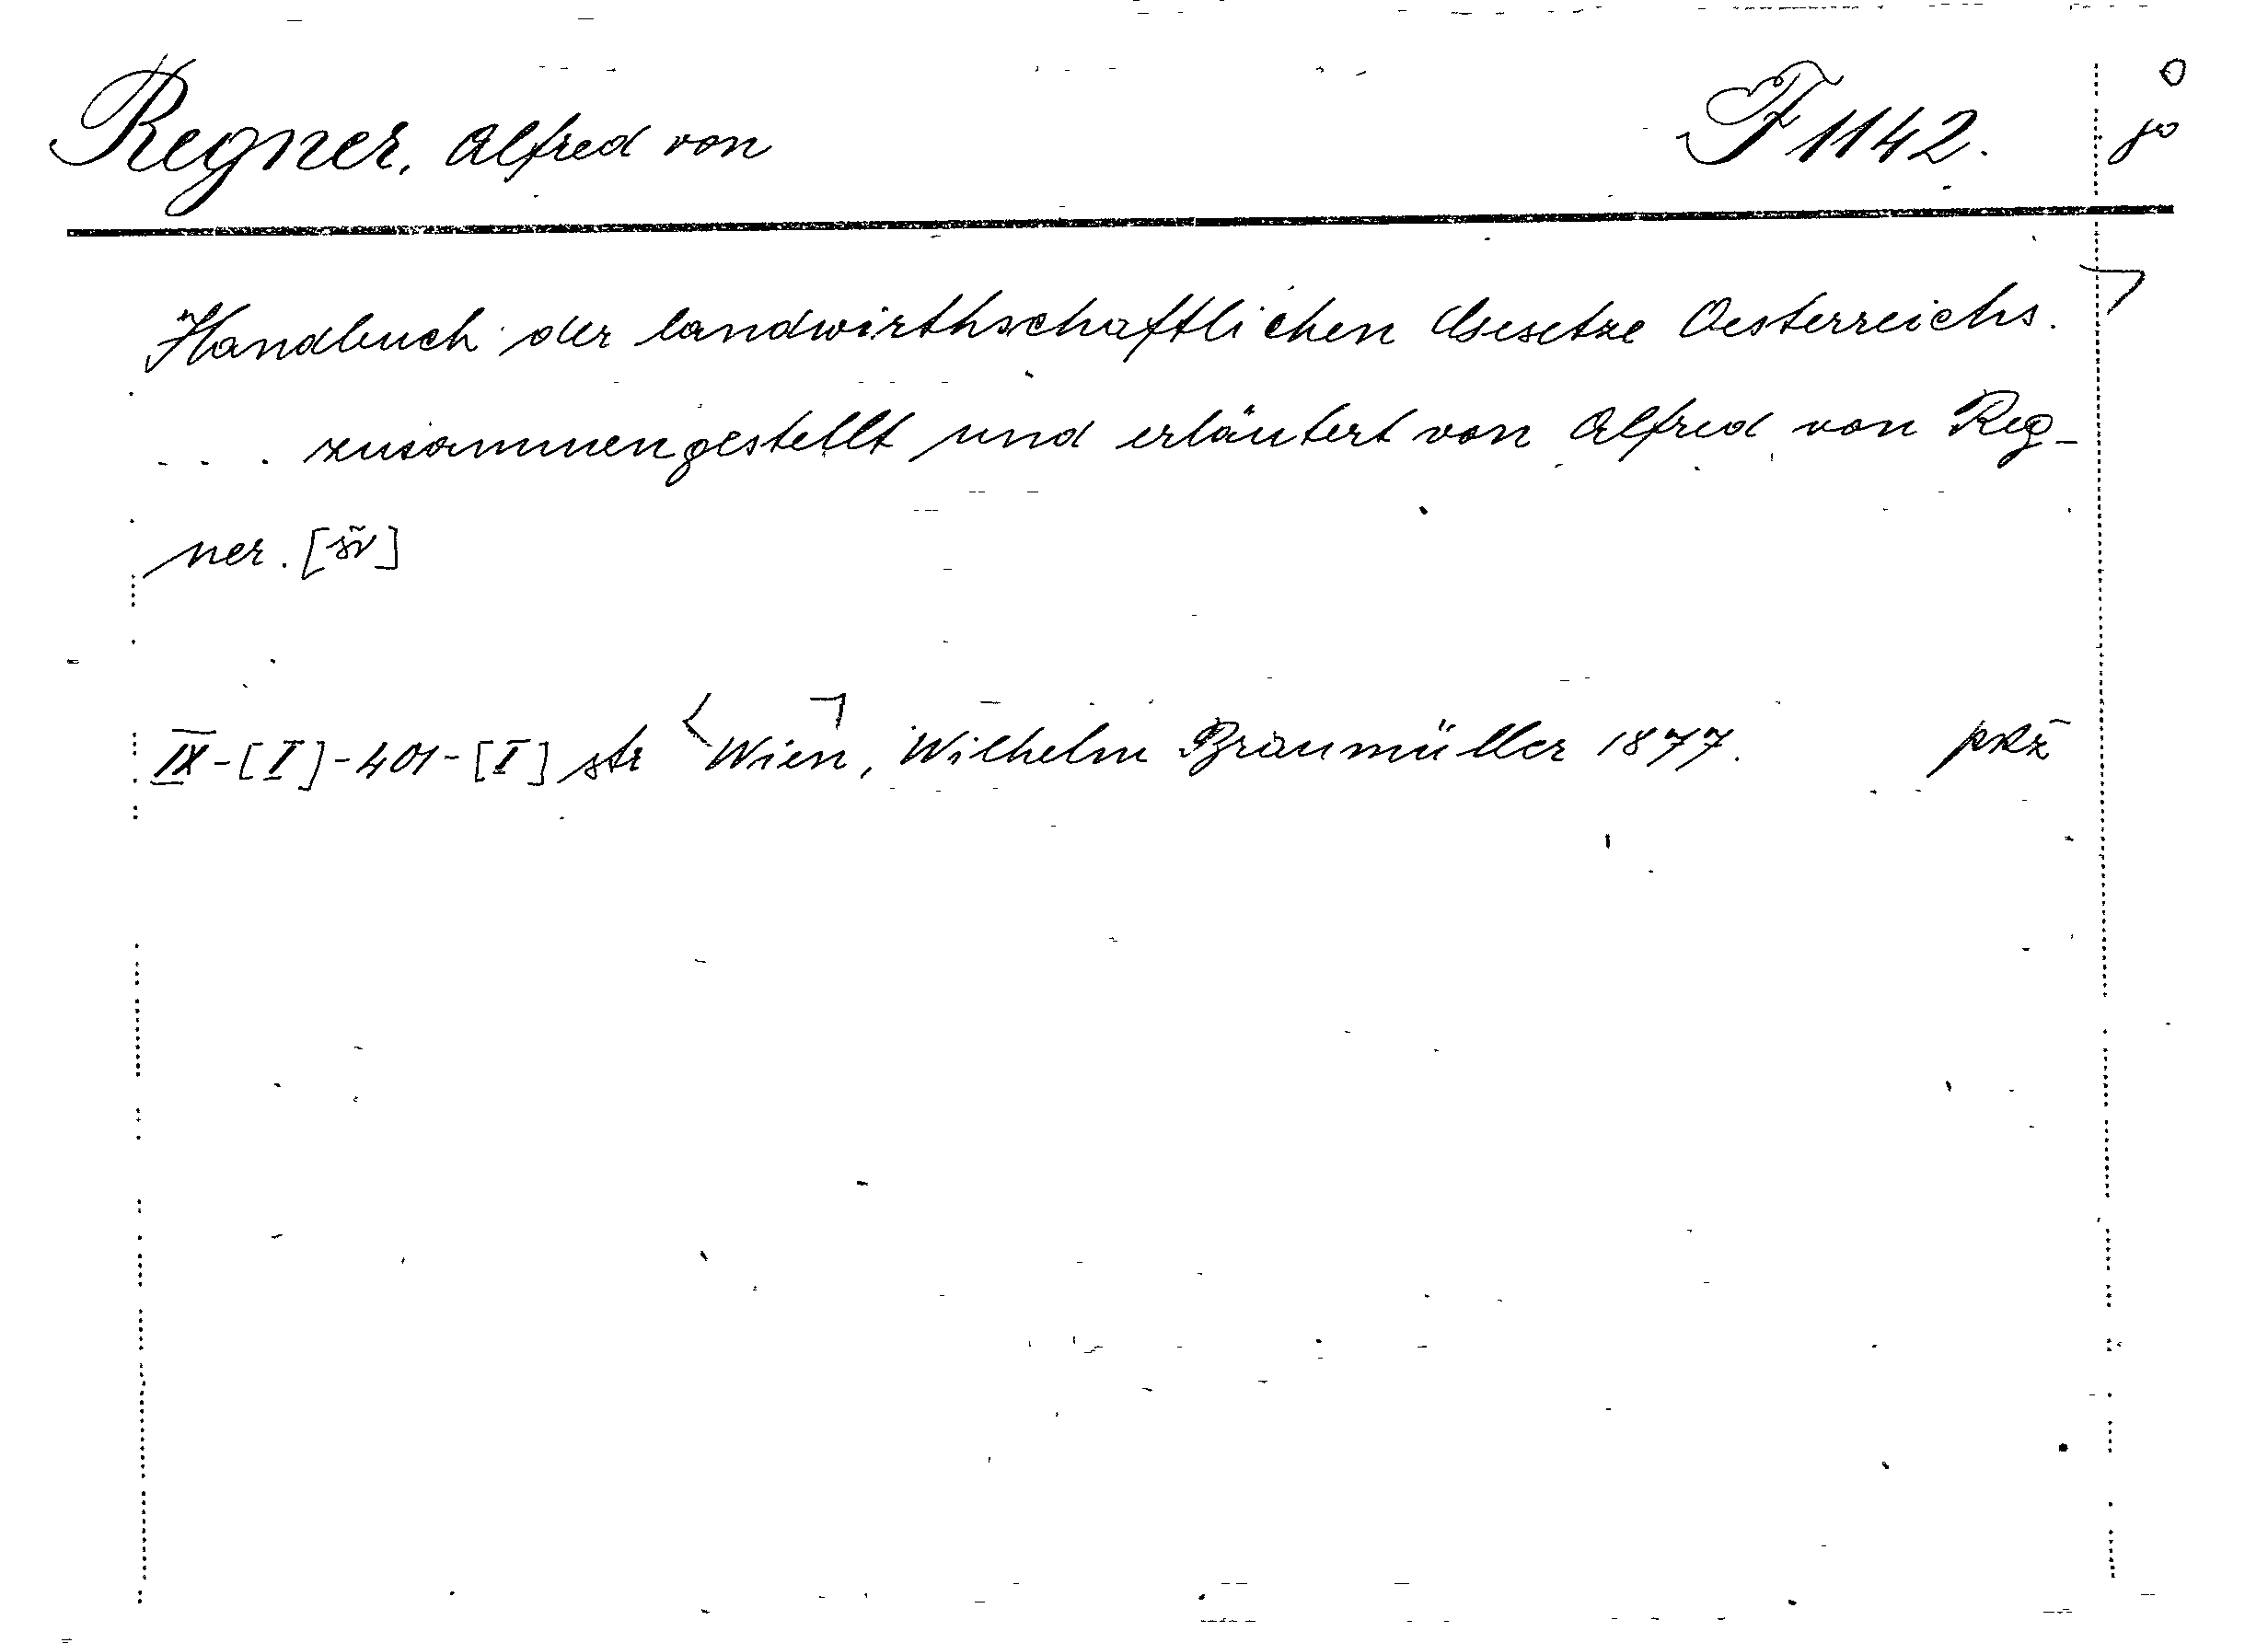 Regner, Alfred von F 1142.
Handbuch der landwirthschaftlichen Gesetze Oesterreichs.
... zusammengestellt und erläutert von Alfred von Reg-
ner. [šv]
IX-[I]-401-[I] str Wien, Wilhelm Braumüller 1877. pkž